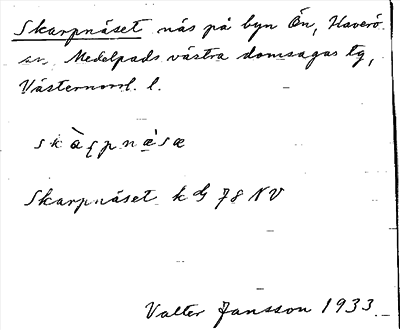 Skarpnäset näs på byn Ön, Haverö
sn, Medelpads västra domsagas tg,
Västernorrl. l.
skàrpnäsæ
Skarpnäset k dG 78 NV
Valter Jansson 1933.